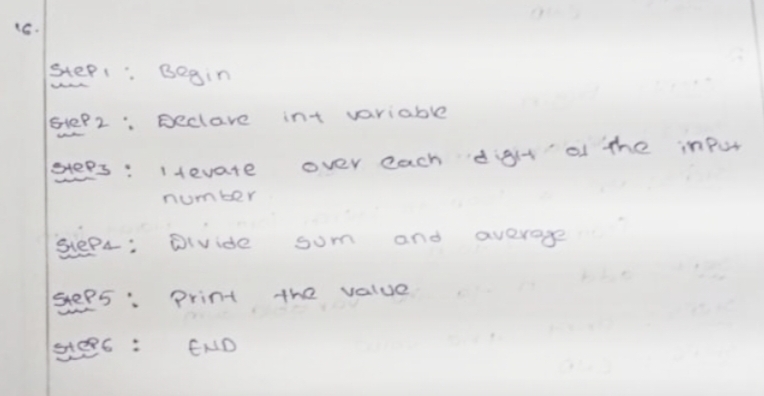 16.
Step1 : Begin
Step2 : Declare int variable
Step3 : iterate over each digit of the input
number
Step4 : Divide sum and average
Step5 : Print the value
Step6 : END